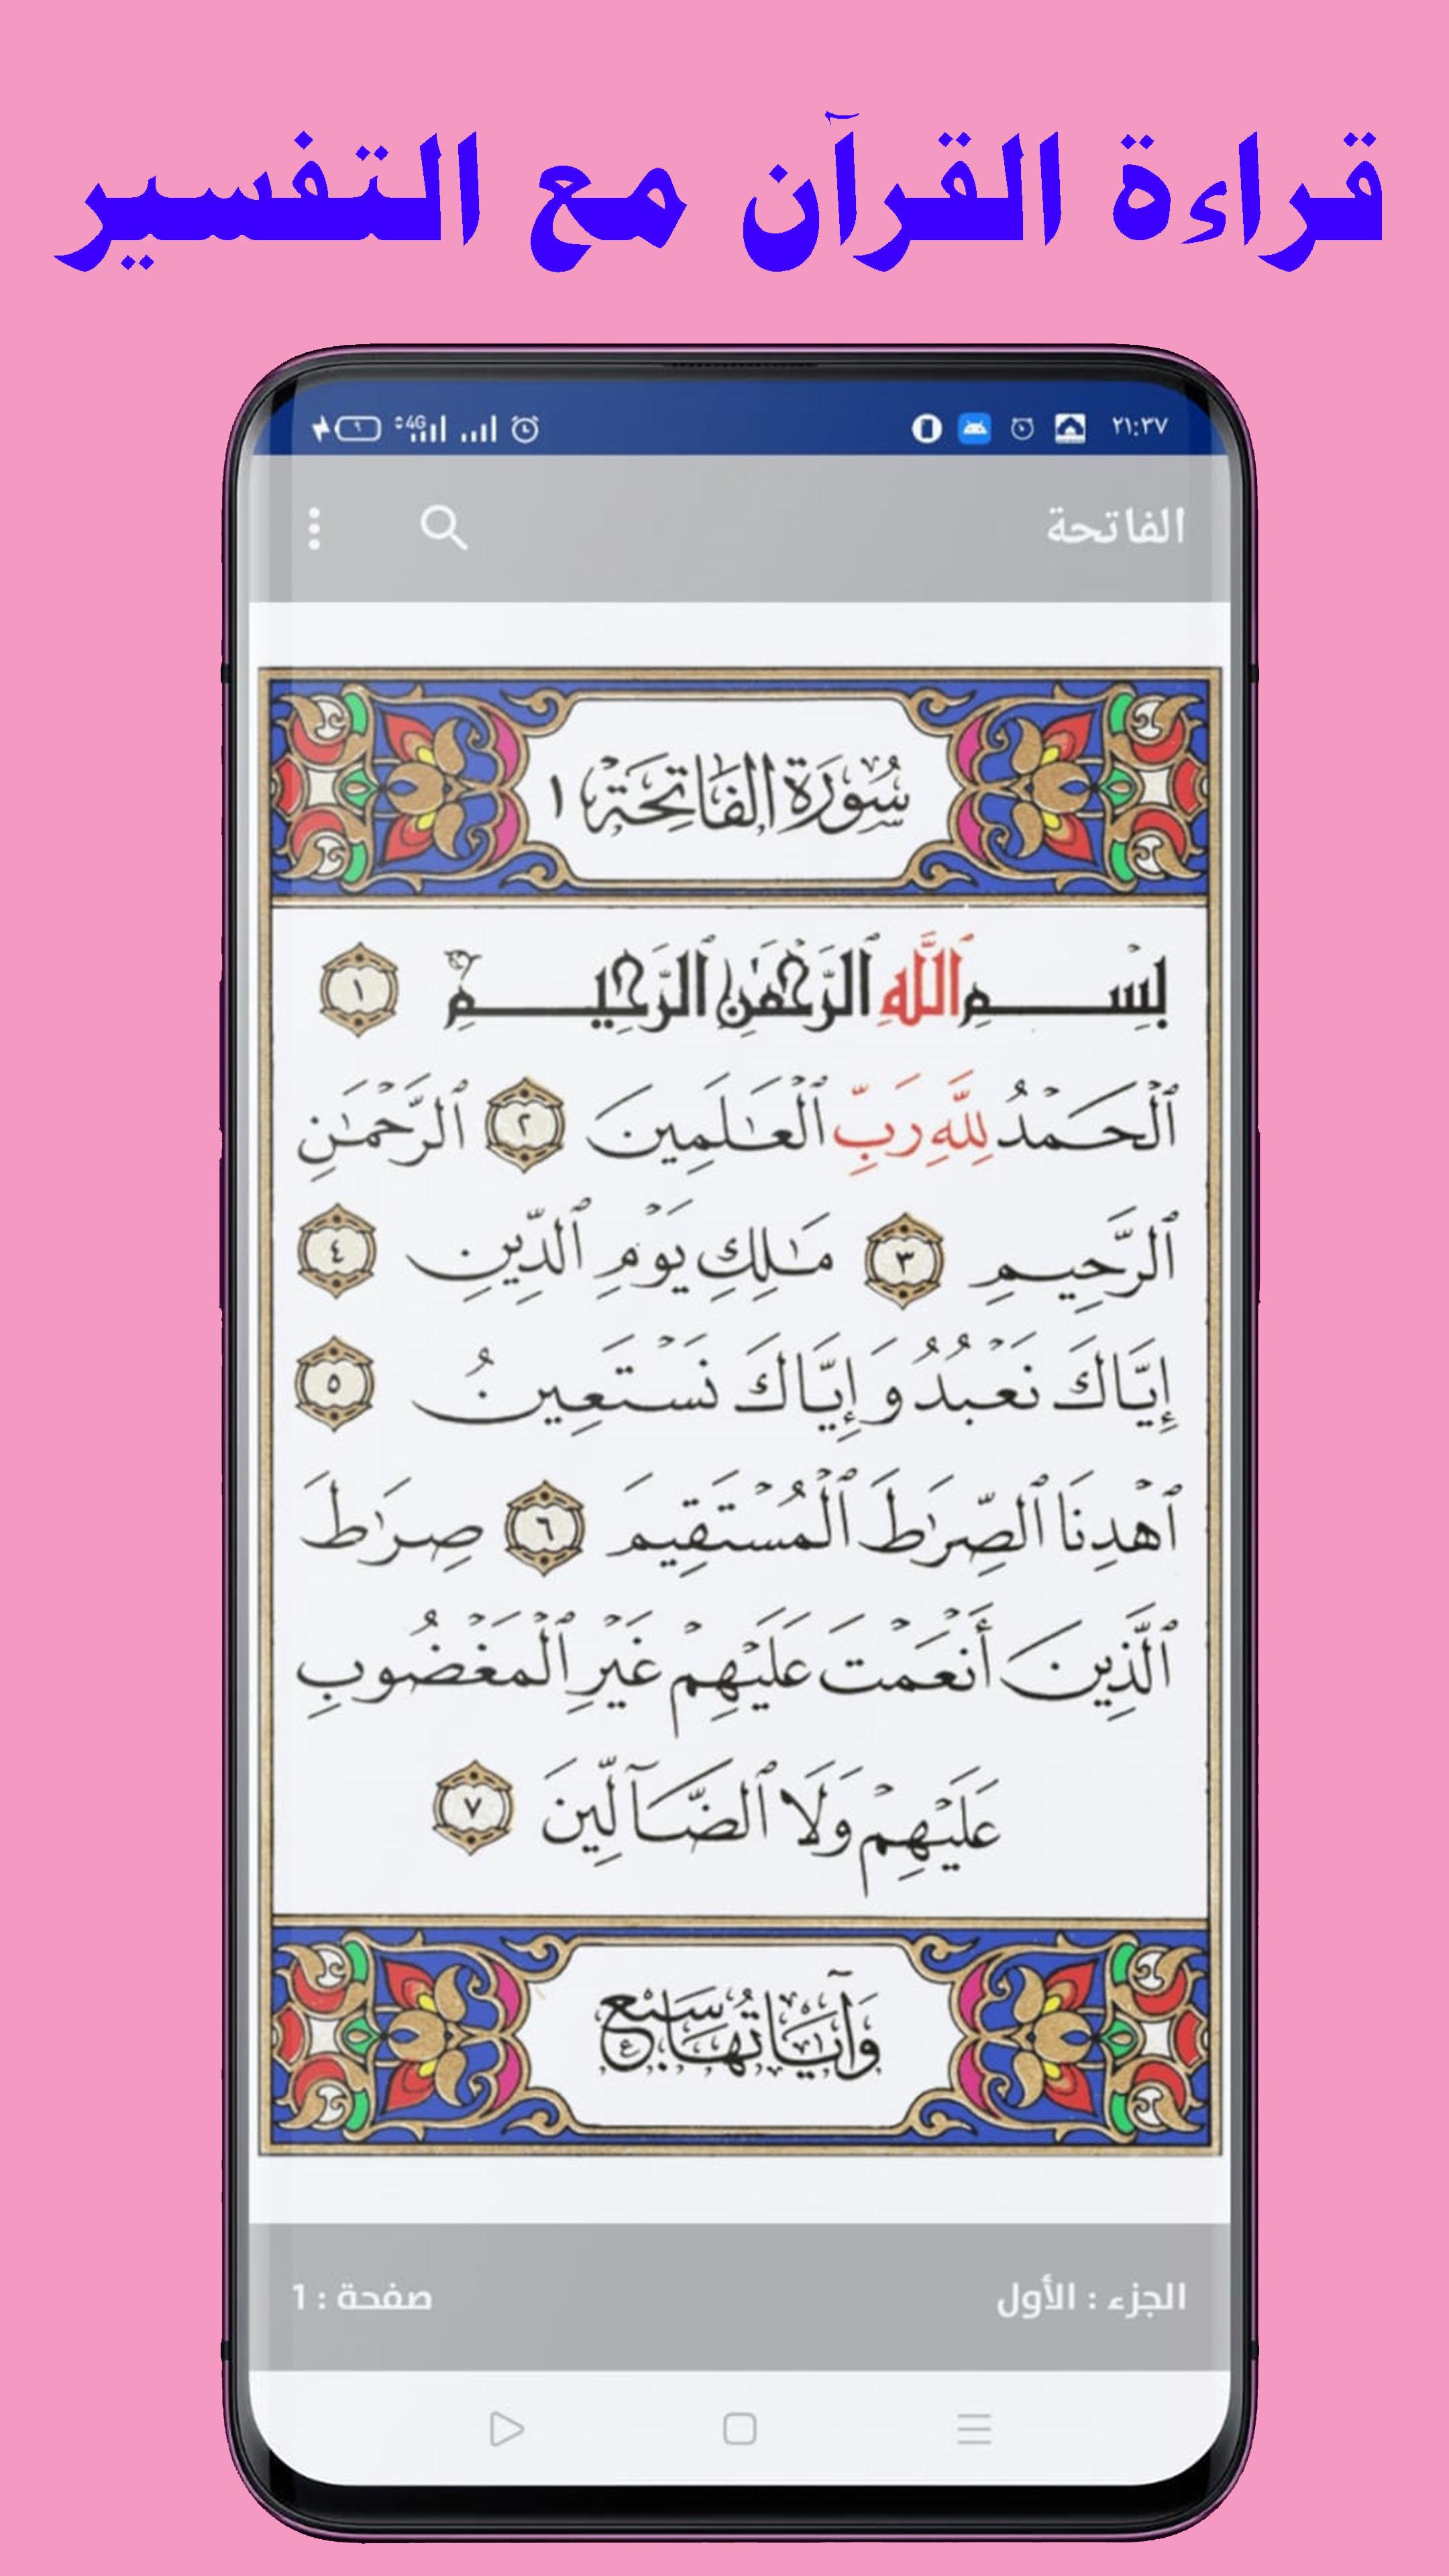 قراءة القرآن مع التفسير
٢١:٣٧
4G
٩
الفاتحة
سُورَةُ الفَاتِحَةِ ١
بِسْمِ ٱللَّهِ ٱلرَّحْمَٰنِ ٱلرَّحِيمِ ١
ٱلْحَمْدُ لِلَّهِ رَبِّ ٱلْعَٰلَمِينَ ٢ ٱلرَّحْمَٰنِ
ٱلرَّحِيمِ ٣ مَٰلِكِ يَوْمِ ٱلدِّينِ ٤
إِيَّاكَ نَعْبُدُ وَإِيَّاكَ نَسْتَعِينُ ٥
ٱهْدِنَا ٱلصِّرَٰطَ ٱلْمُسْتَقِيمَ ٦ صِرَٰطَ
ٱلَّذِينَ أَنْعَمْتَ عَلَيْهِمْ غَيْرِ ٱلْمَغْضُوبِ
عَلَيْهِمْ وَلَا ٱلضَّآلِّينَ ٧
وَآيَاتُهَا سَبْعٌ
الجزء : الأول
صفحة : 1